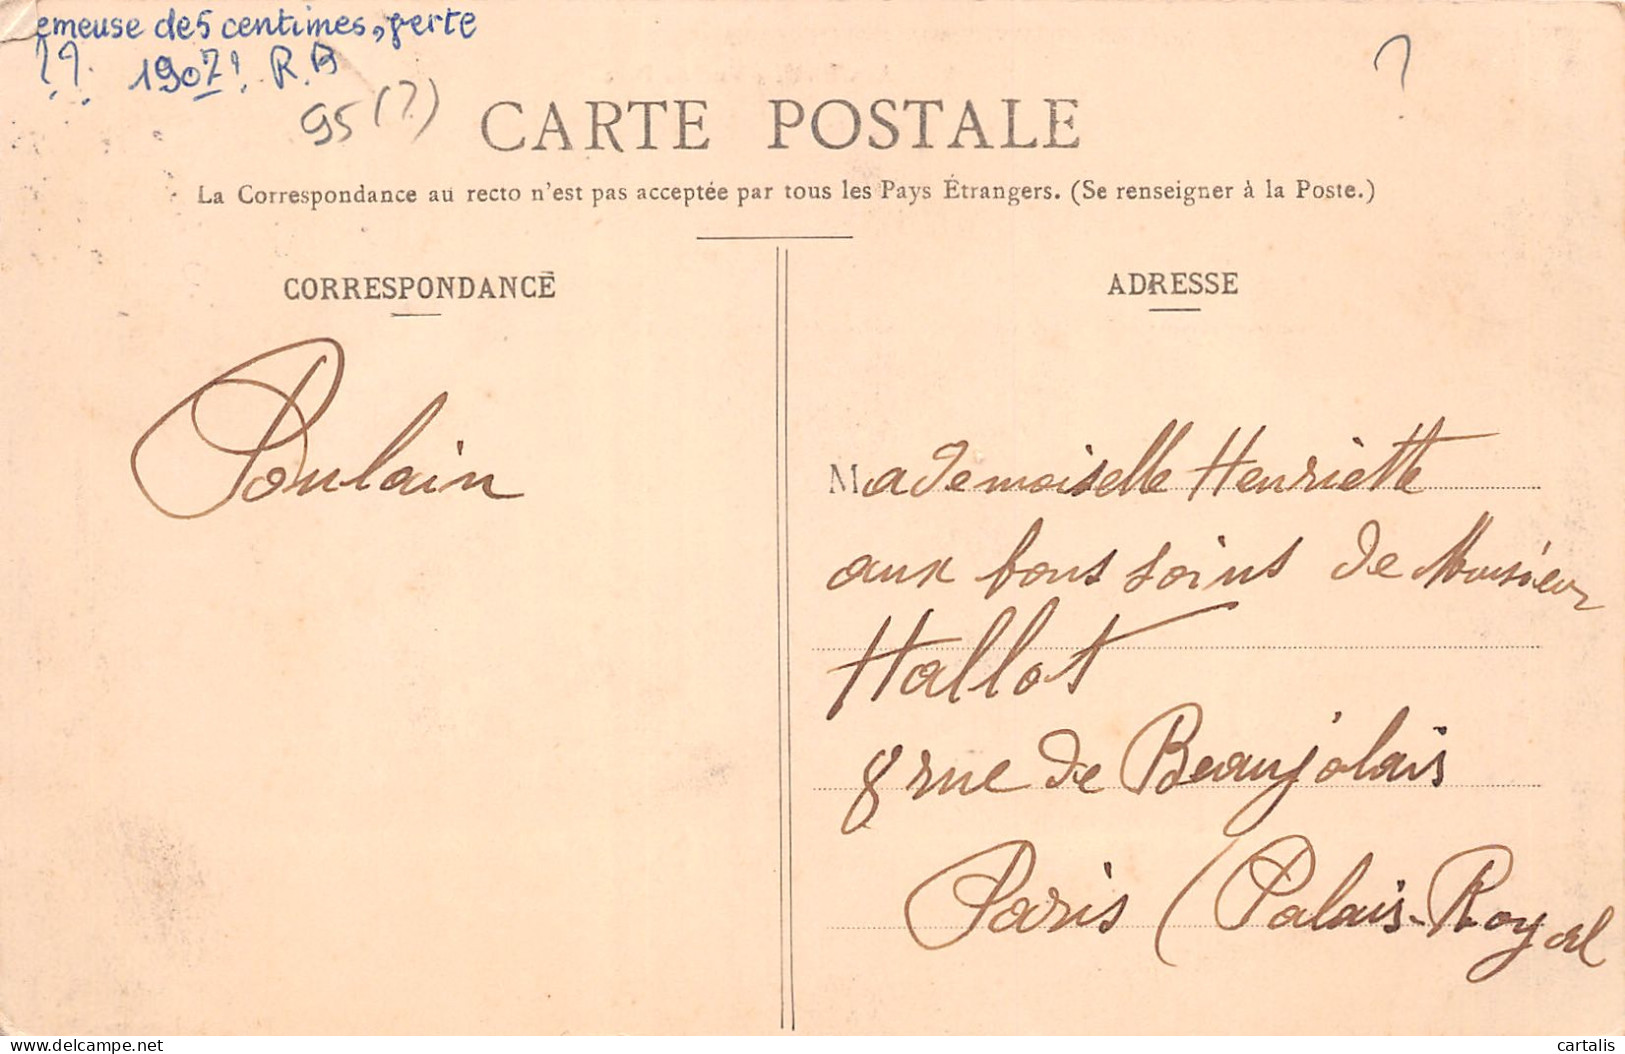 emeuse de 5 centimes, verte
?? 1907! R.B
95 (?)
?
CARTE POSTALE
La Correspondance au recto n'est pas acceptée par tous les Pays Étrangers. (Se renseigner à la Poste.)
CORRESPONDANCE
Poulain
ADRESSE
Mademoiselle Henriette
aux bons soins de Monsieur
Hallot
8 rue de Beaujolais
Paris (Palais-Royal
www.delcampe.net
cartalis